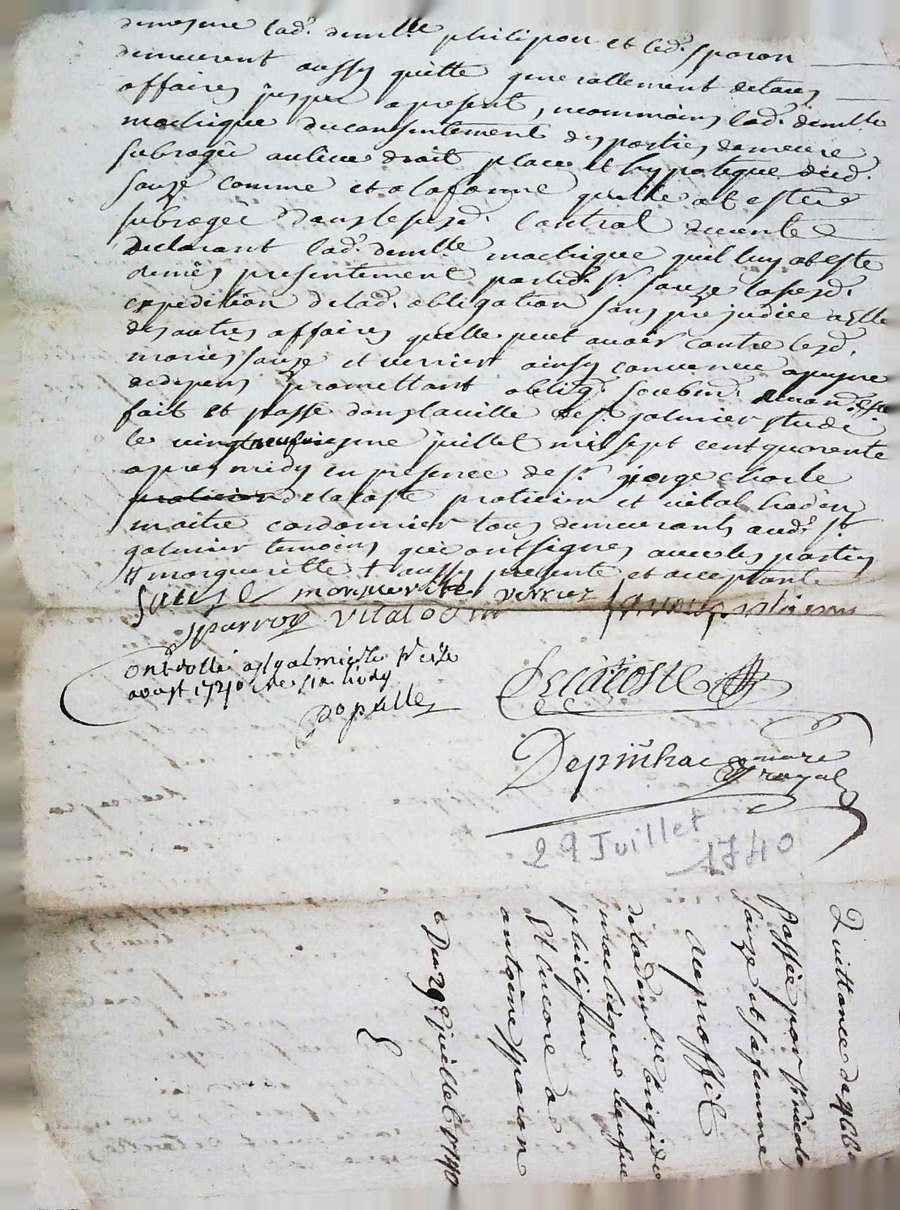 demesme lad. demlle philipon et led. sparon
demeurent aussy quitte generallement de tous
affaires jusques a present, neanmoins lad. demlle
machique du consentement des parties demeure
subrogée au lieu droit place et hypoteque dud.
sauze comme et a la forme quelle at estée
subrogée dans le susd. contrat de vente
declarant lad. demlle machique quil luy at este
remis presentement par led. sr. sauze la susd.
expedition de lad. obligation sans prejudice a elle
des autres affaires quelle peut avoir contre lesd.
maries sauze et verrier ainsy convenu a peyne
de depens promettant oblig. soubm. renon.
fait et passe dans la ville de st. galmier etude
le vingt neufviesme juillet mil sept cent quarente
apres midy en presence de sr. jorge charle
delacoste praticien et vital
maitre cordonnier tous demeurants aud. st.
galmier temoins qui ont signes avec les parties
# marguerite + aussy presente et acceptante
Sauze marguerite verrier
sparron vital
Controllé a st galmier le
aoust 1740
Delacoste
Depinhac nore royal
29 Juillet 1740
Quittance de 466
Passée par sr
Sauze et sa femme
au proffit
de la demlle brigide
machique veufve
philipon
Et encore a
antoine sparon
Du 29e juillet 1740